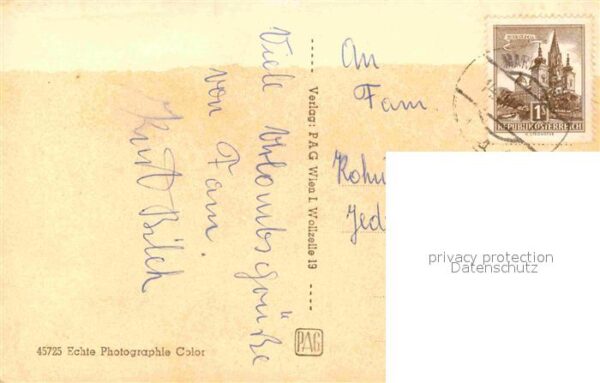 Viele Urlaubsgrüße
von Fam.
Kurt Bilek
Verlag: PAG Wien I. Wollzeile 19
PAG
45725 Echte Photographie Color
An
Fam
REPUBLIK ÖSTERREICH
privacy protection
Datenschutz